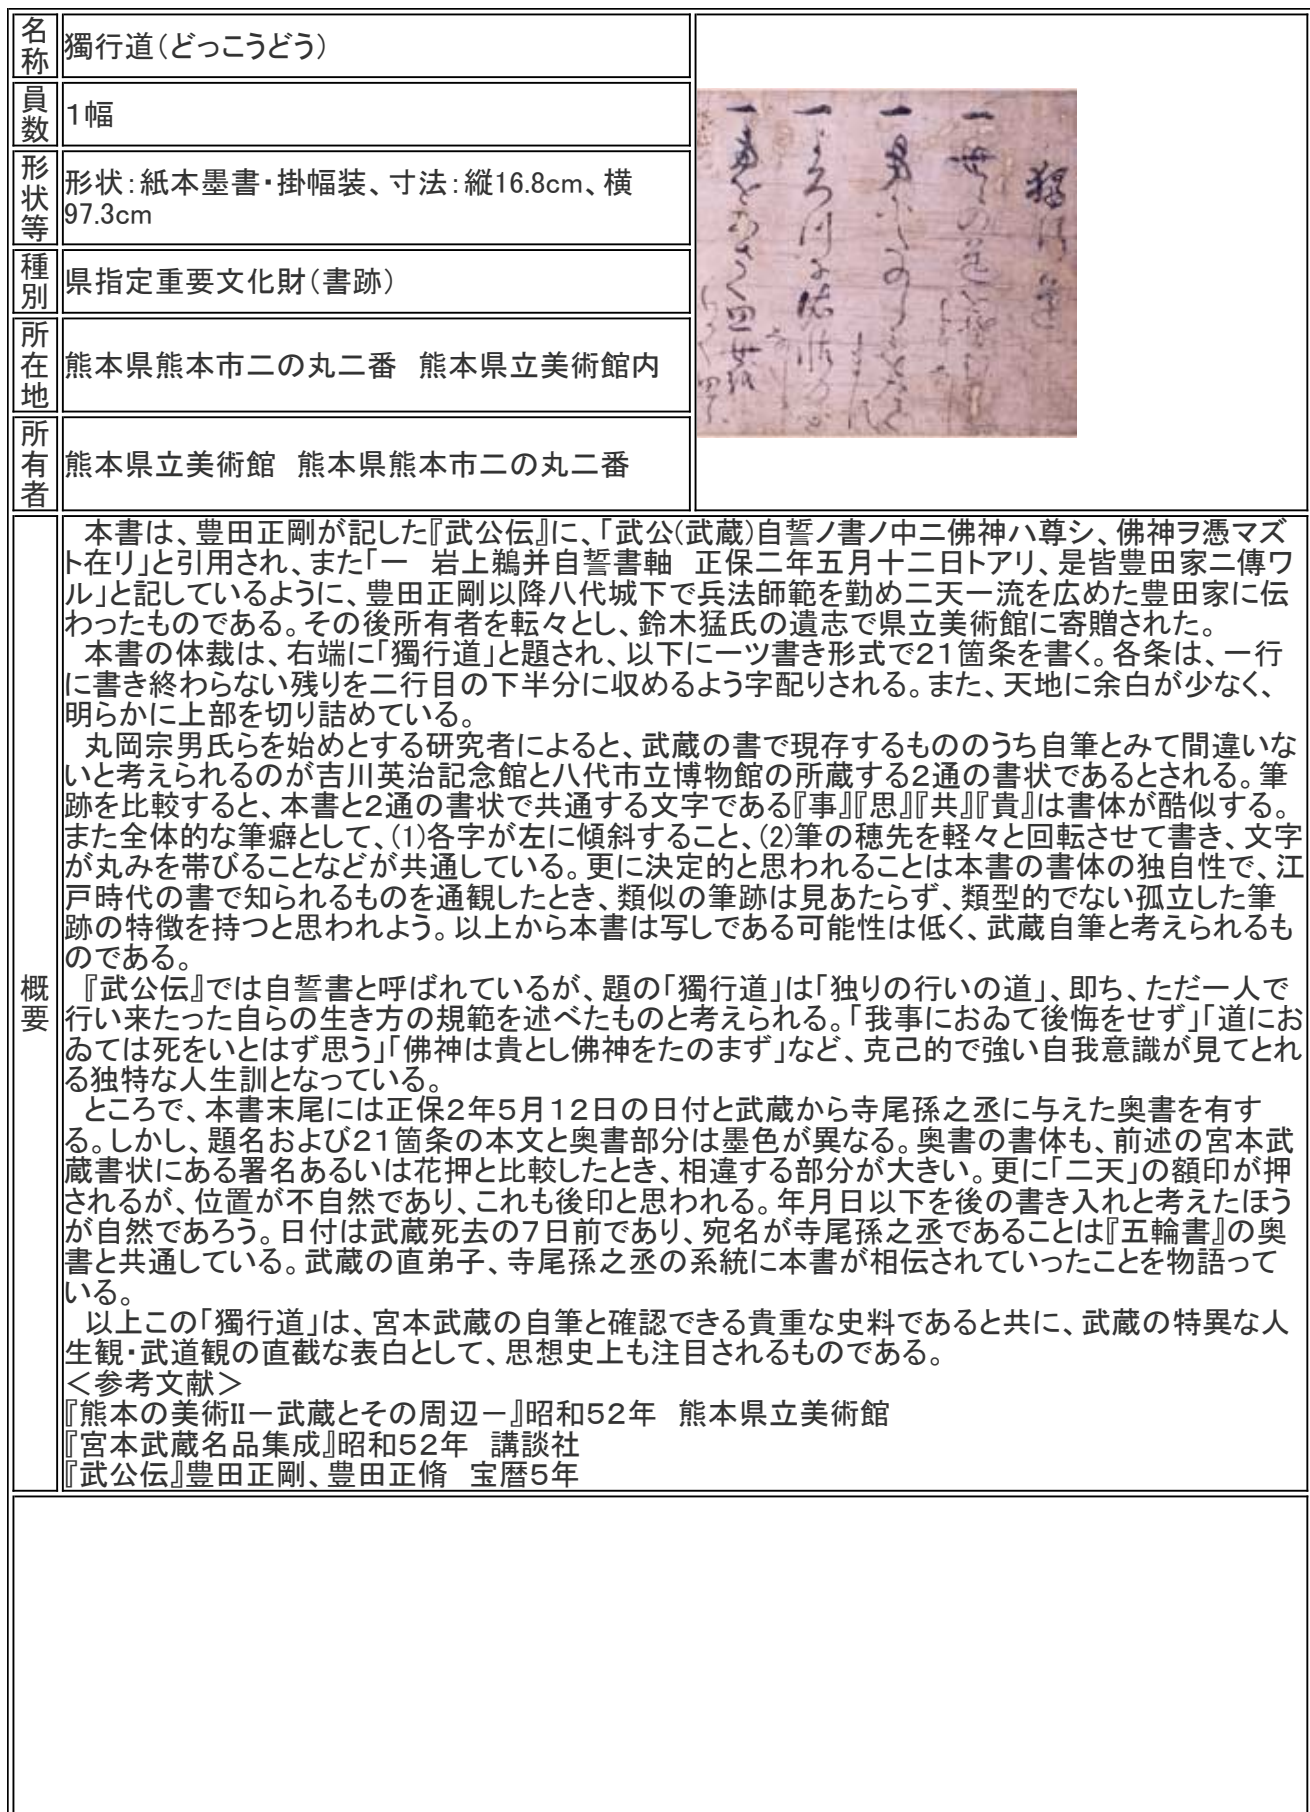 名称
獨行道（どっこうどう）
員数
１幅
形状等
形状：紙本墨書・掛幅装、寸法：縦16.8cm、横
97.3cm
種別
県指定重要文化財（書跡）
所在地
熊本県熊本市二の丸二番　熊本県立美術館内
所有者
熊本県立美術館　熊本県熊本市二の丸二番
獨行道
概要
　本書は、豊田正剛が記した『武公伝』に、「武公(武蔵)自誓ノ書ノ中ニ佛神ハ尊シ、佛神ヲ憑マズ
ト在リ」と引用され、また「一　岩上鵜并自誓書軸　正保二年五月十二日トアリ、是皆豊田家ニ傳ワ
ル」と記しているように、豊田正剛以降八代城下で兵法師範を勤め二天一流を広めた豊田家に伝
わったものである。その後所有者を転々とし、鈴木猛氏の遺志で県立美術館に寄贈された。
　本書の体裁は、右端に「獨行道」と題され、以下に一ツ書き形式で２１箇条を書く。各条は、一行
に書き終わらない残りを二行目の下半分に収めるよう字配りされる。また、天地に余白が少なく、
明らかに上部を切り詰めている。
　丸岡宗男氏らを始めとする研究者によると、武蔵の書で現存するもののうち自筆とみて間違いな
いと考えられるのが吉川英治記念館と八代市立博物館の所蔵する２通の書状であるとされる。筆
跡を比較すると、本書と２通の書状で共通する文字である『事』『思』『共』『貴』は書体が酷似する。
また全体的な筆癖として、(1)各字が左に傾斜すること、(2)筆の穂先を軽々と回転させて書き、文字
が丸みを帯びることなどが共通している。更に決定的と思われることは本書の書体の独自性で、江
戸時代の書で知られるものを通観したとき、類似の筆跡は見あたらず、類型的でない孤立した筆
跡の特徴を持つと思われよう。以上から本書は写しである可能性は低く、武蔵自筆と考えられるも
のである。
　『武公伝』では自誓書と呼ばれているが、題の「獨行道」は「独りの行いの道」、即ち、ただ一人で
行い来たった自らの生き方の規範を述べたものと考えられる。「我事におゐて後悔をせず」「道にお
ゐては死をいとはず思う」「佛神は貴とし佛神をたのまず」など、克己的で強い自我意識が見てとれ
る独特な人生訓となっている。
　ところで、本書末尾には正保２年５月１２日の日付と武蔵から寺尾孫之丞に与えた奥書を有す
る。しかし、題名および２１箇条の本文と奥書部分は墨色が異なる。奥書の書体も、前述の宮本武
蔵書状にある署名あるいは花押と比較したとき、相違する部分が大きい。更に「二天」の額印が押
されるが、位置が不自然であり、これも後印と思われる。年月日以下を後の書き入れと考えたほう
が自然であろう。日付は武蔵死去の７日前であり、宛名が寺尾孫之丞であることは『五輪書』の奥
書と共通している。武蔵の直弟子、寺尾孫之丞の系統に本書が相伝されていったことを物語って
いる。
　以上この「獨行道」は、宮本武蔵の自筆と確認できる貴重な史料であると共に、武蔵の特異な人
生観・武道観の直截な表白として、思想史上も注目されるものである。
＜参考文献＞
『熊本の美術Ⅱ－武蔵とその周辺－』昭和５２年　熊本県立美術館
『宮本武蔵名品集成』昭和５２年　講談社
『武公伝』豊田正剛、豊田正脩　宝暦５年